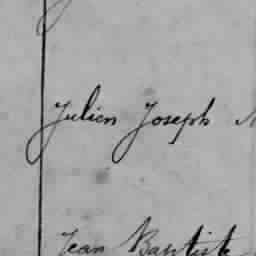 Julien Joseph
Jean Baptiste